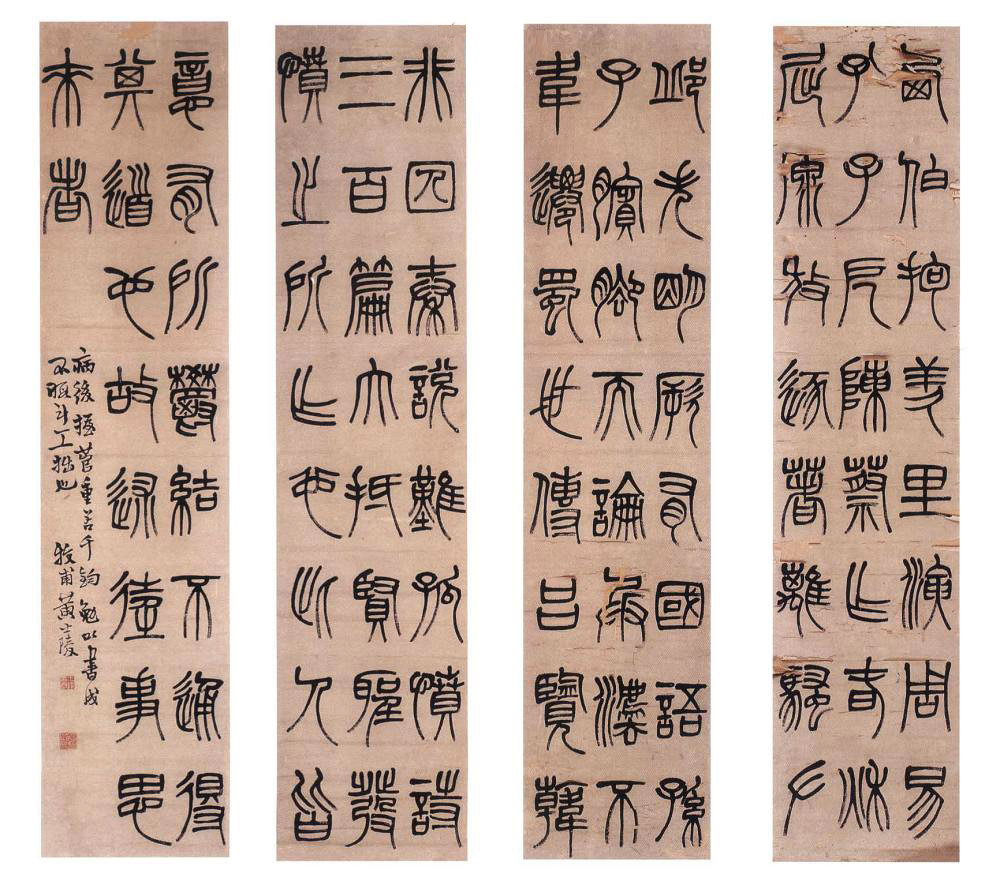 西伯拘羑里演周易
孔子戹陳蔡作春秋
屈原放逐著離騷左
邱失明厥有國語孫
子臏腳而論兵法不
韋遷蜀世傳呂覽韓
非囚秦說難孤憤詩
三百篇大抵賢聖發
憤之所作也此人皆
意有所鬱結不通得
其道也故述往事思
來者
病後握管重若千鈞勉以書成
不暇計工拙也 牧甫黃士陵